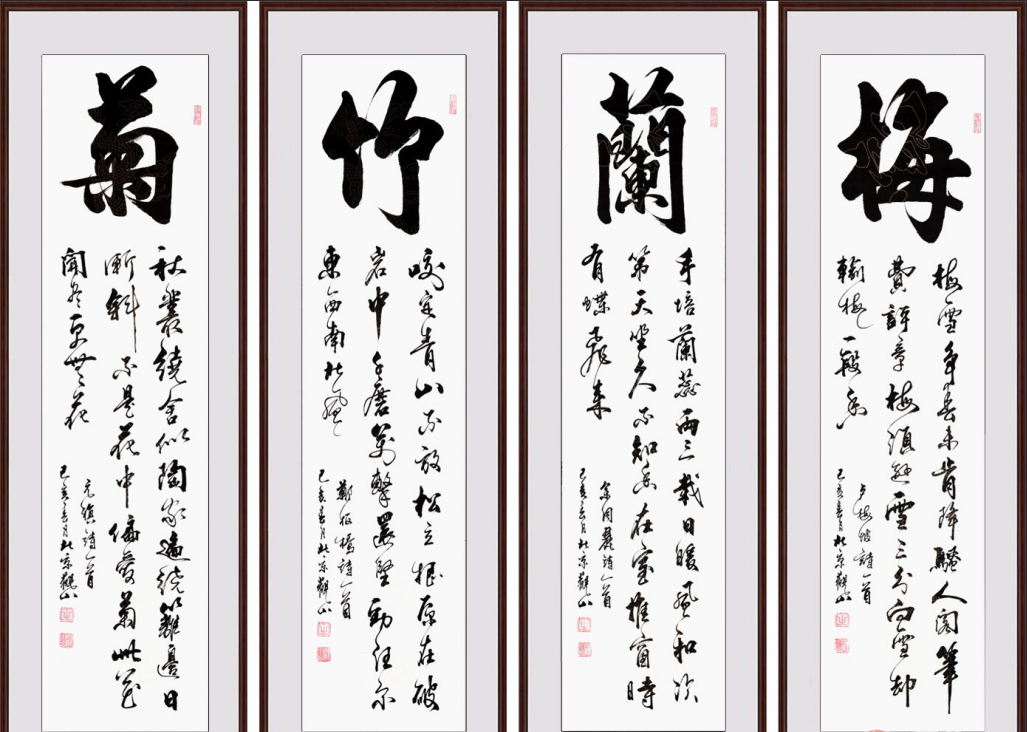 梅
梅雪争春未肯降騷人閣筆
費評章梅須遜雪三分白雪却
輸梅一段香
卢梅坡詩一首
己亥春月北京觀山
蘭
手培蘭蕊两三栽日暖風和次
第天坐久不知香在室推窗時
有蝶飛來
余同麓詩一首
己亥春月北京觀山
竹
咬定青山不放松立根原在破
岩中千磨萬擊還堅勁任尔
東西南北風
鄭板橋詩一首
己亥春月北京觀山
菊
秋叢繞舍似陶家遍繞籬邊日
漸斜不是花中偏愛菊此花
開盡更無花
元稹詩一首
己亥春月北京觀山